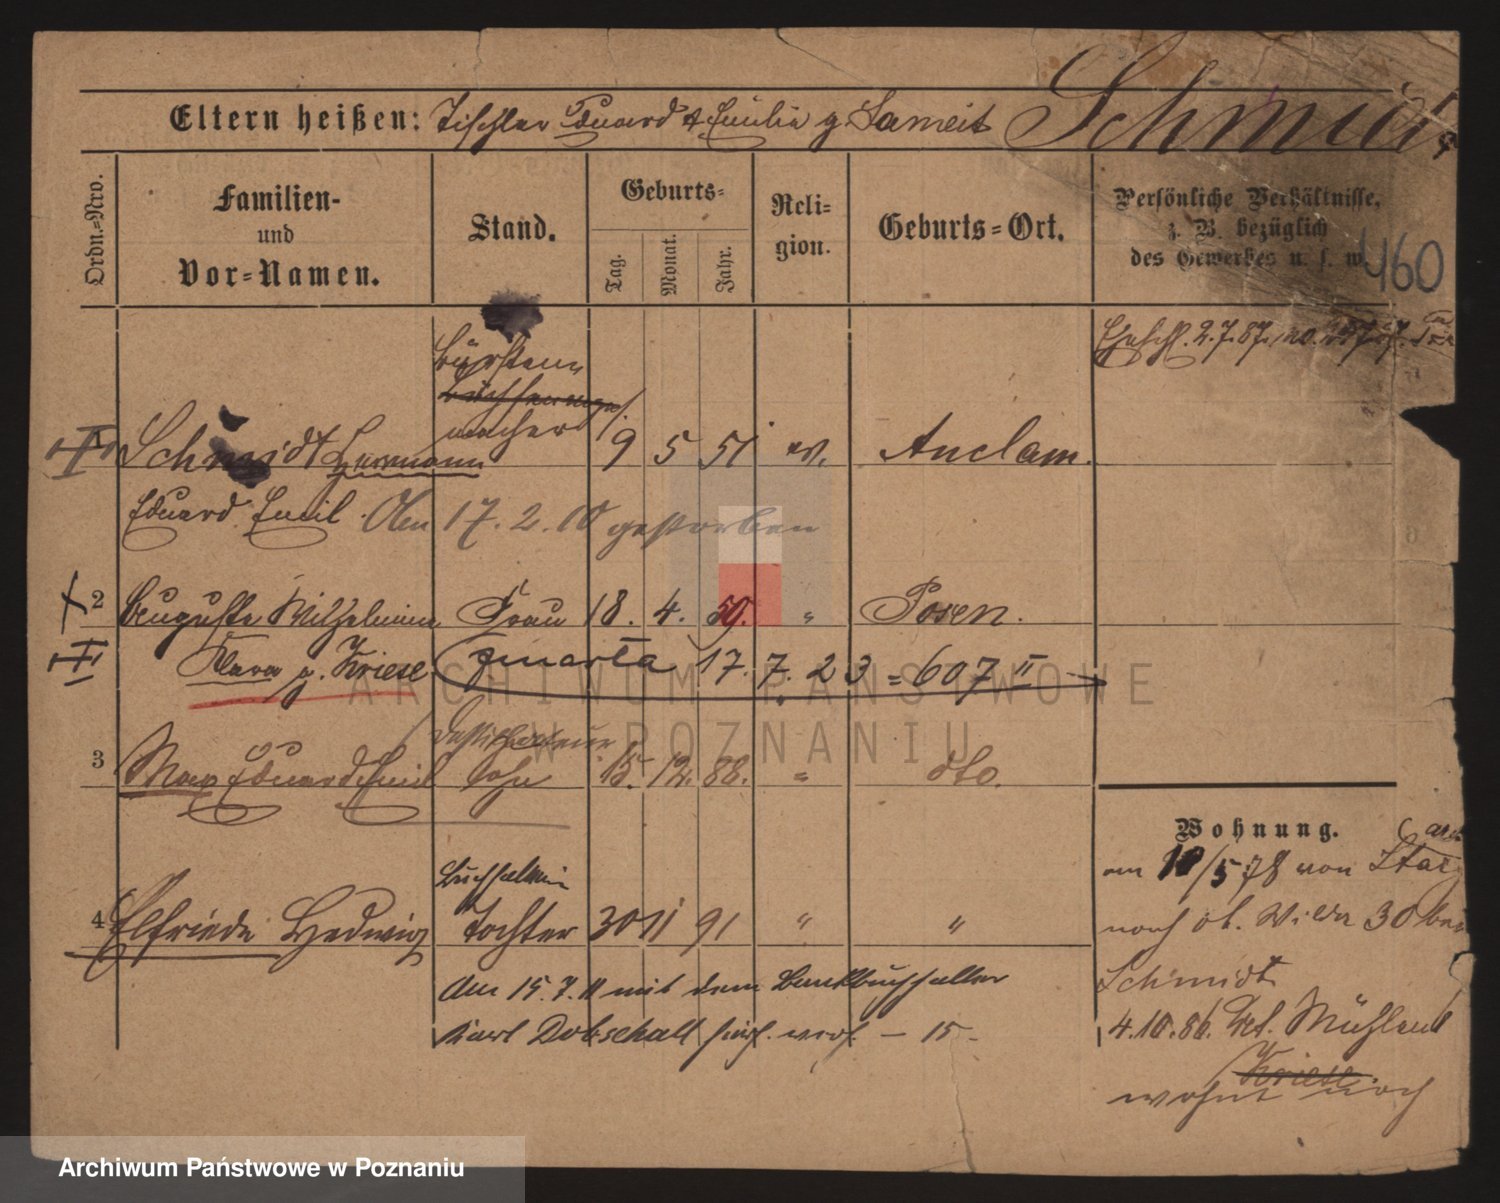 Eltern heißen: Tischler Eduard & Emilie g. Sameit Schmidt
Ordn.=Nro.
Familien-
und
Vor=Namen.
Stand.
Geburts=
Tag.
Monat.
Jahr.
Reli=
gion.
Geburts=Ort.
Persönliche Verhältnisse,
z. B. bezüglich
des Gewerbes u. s. w.
460
Eheschl. 2.7.87.
Bürsten
macher
Schmidt Hermann 9 5 51 ev. Anclam.
Eduard Emil. Am 17. 2. 10 gestorben
2 Auguste Wilhelmine Frau 18. 4. 50. " Posen.
Clara g. Kriese quarta 17. 7. 23 = 607 II
3 Max Eduard Emil Sohn 15. 12. 88. " dto.
Buchhalterin
4 Elfriede Hedwig Tochter 30 11 91 " "
Am 15. 7. 11 mit dem Bankbuchhalter
Karl Dobschall hier verh. – 15 –
Wohnung.
am 10/5 78 von Star
nach ob. Wilda 30 bei
Schmidt
4.10.86. Mühlen
Kriese
wohnt noch
ARCHIWUM PAŃSTWOWE
W POZNANIU
Archiwum Państwowe w Poznaniu